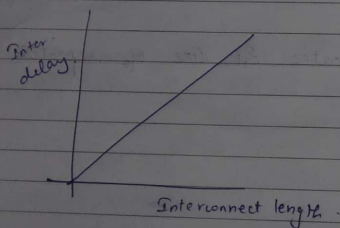 Inter
delay.
Interconnect length.